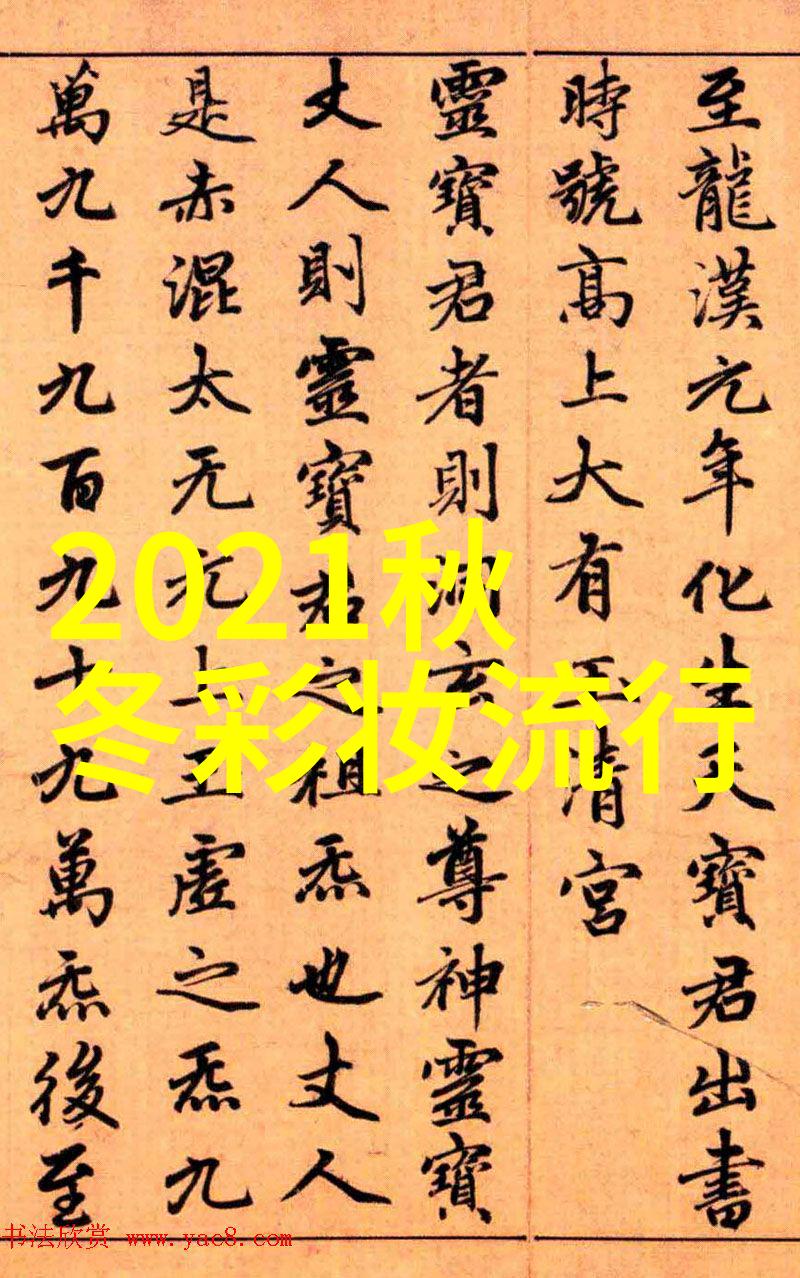 至龍漢元年化生天寶君出書
時號髙上大有玉清宮
靈寶君者則洞玄之尊神靈寶
丈人則靈寶君之祖炁也丈人
是赤混太无元上玉虛之炁九
萬九千九百九十九萬炁後至
2021秋
冬彩妆流行
书法欣赏 www.yac8.com